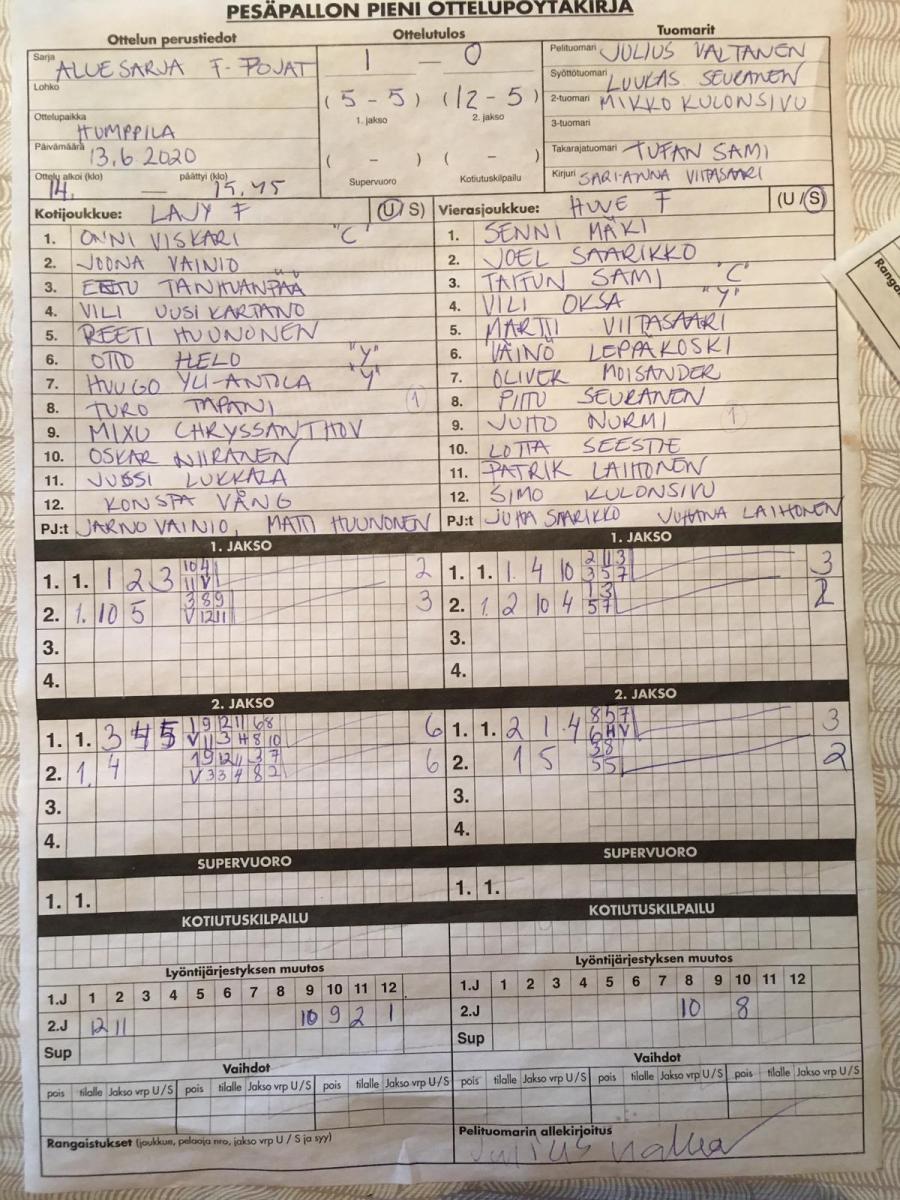 PESÄPALLON PIENI OTTELUPÖYTÄKIRJA
Ottelun perustiedot
Sarja ALUESARJA F-POJAT
Lohko
Ottelupaikka HUMPPILA
Päivämäärä 13.6 2020
Ottelu alkoi (klo) 14. — päättyi (klo) 15.45
Ottelutulos
1 — 0
(5 - 5) (12 - 5)
1. jakso 2. jakso
( - ) ( - )
Supervuoro Kotiutuskilpailu
Tuomarit
Pelituomari JULIUS VALTANEN
Syöttötuomari LUUKAS SEURANEN
2-tuomari MIKKO KULONSIVU
3-tuomari
Takarajatuomari TUFAN SAMI
Kirjuri SARI-ANNA VIITASAARI
Kotijoukkue: LAJY F (U/S)
1. ONNI VISKARI "C"
2. JOONA VAINIO
3. EETU TANHUANPÄÄ
4. VILI UUSIKARTANO
5. REETI HUUNONEN
6. OTTO HELO "Y"
7. HUUGO YLI-ANTOLA "Y"
8. TURO TAPANI 1
9. MIXU CHRYSSANTHOV
10. OSKAR NIIRANEN
11. JUSSI LUKKALA
12. KONSTA VÅNG
PJ:t JARNO VAINIO, MATTI HUUNONEN
Vierasjoukkue: HUVE F (U/S)
1. SENNI MÄKI
2. JOEL SAARIKKO
3. TAITUN SAMI "C"
4. VILI OKSA "Y"
5. MARTTI VIITASAARI
6. VÄINÖ LEPPÄKOSKI
7. OLIVER MOISANDER
8. PIITU SEURANEN
9. JUHO NURMI 1
10. LOTTA SEESTIE
11. PATRIK LAIHONEN
12. SIMO KULONSIVU
PJ:t JUHA SAARIKKO JUHANA LAIHONEN
1. JAKSO
1. 1. 1 2 3 10 4 11 V 2
2. 1. 10 5 3 8 9 V 12 11 3
3.
4.
1. JAKSO
1. 1. 1. 4 10 2 11 3 3 5 7 3
2. 1. 2 10 4 1 3 5 7 2
3.
4.
2. JAKSO
1. 1. 3 4 5 1 9 12 11 6 8 V 11 3 H 8 10 6
2. 1. 4 1 9 12 11 3 7 V 3 3 4 8 2 6
3.
4.
2. JAKSO
1. 1. 2 1 4 8 5 7 6 H V 3
2. 1 5 3 8 5 5 2
3.
4.
SUPERVUORO
1. 1.
SUPERVUORO
1. 1.
KOTIUTUSKILPAILU
KOTIUTUSKILPAILU
Lyöntijärjestyksen muutos
1.J 1 2 3 4 5 6 7 8 9 10 11 12
2.J 12 11 10 9 2 1
Sup
Lyöntijärjestyksen muutos
1.J 1 2 3 4 5 6 7 8 9 10 11 12
2.J 10 8
Sup
Vaihdot
pois tilalle Jakso vrp U/S pois tilalle Jakso vrp U/S pois tilalle Jakso vrp U/S
Vaihdot
pois tilalle Jakso vrp U/S pois tilalle Jakso vrp U/S pois tilalle Jakso vrp U/S
Rangaistukset (joukkue, pelaaja nro, jakso vrp U / S ja syy)
Pelituomarin allekirjoitus
Julius